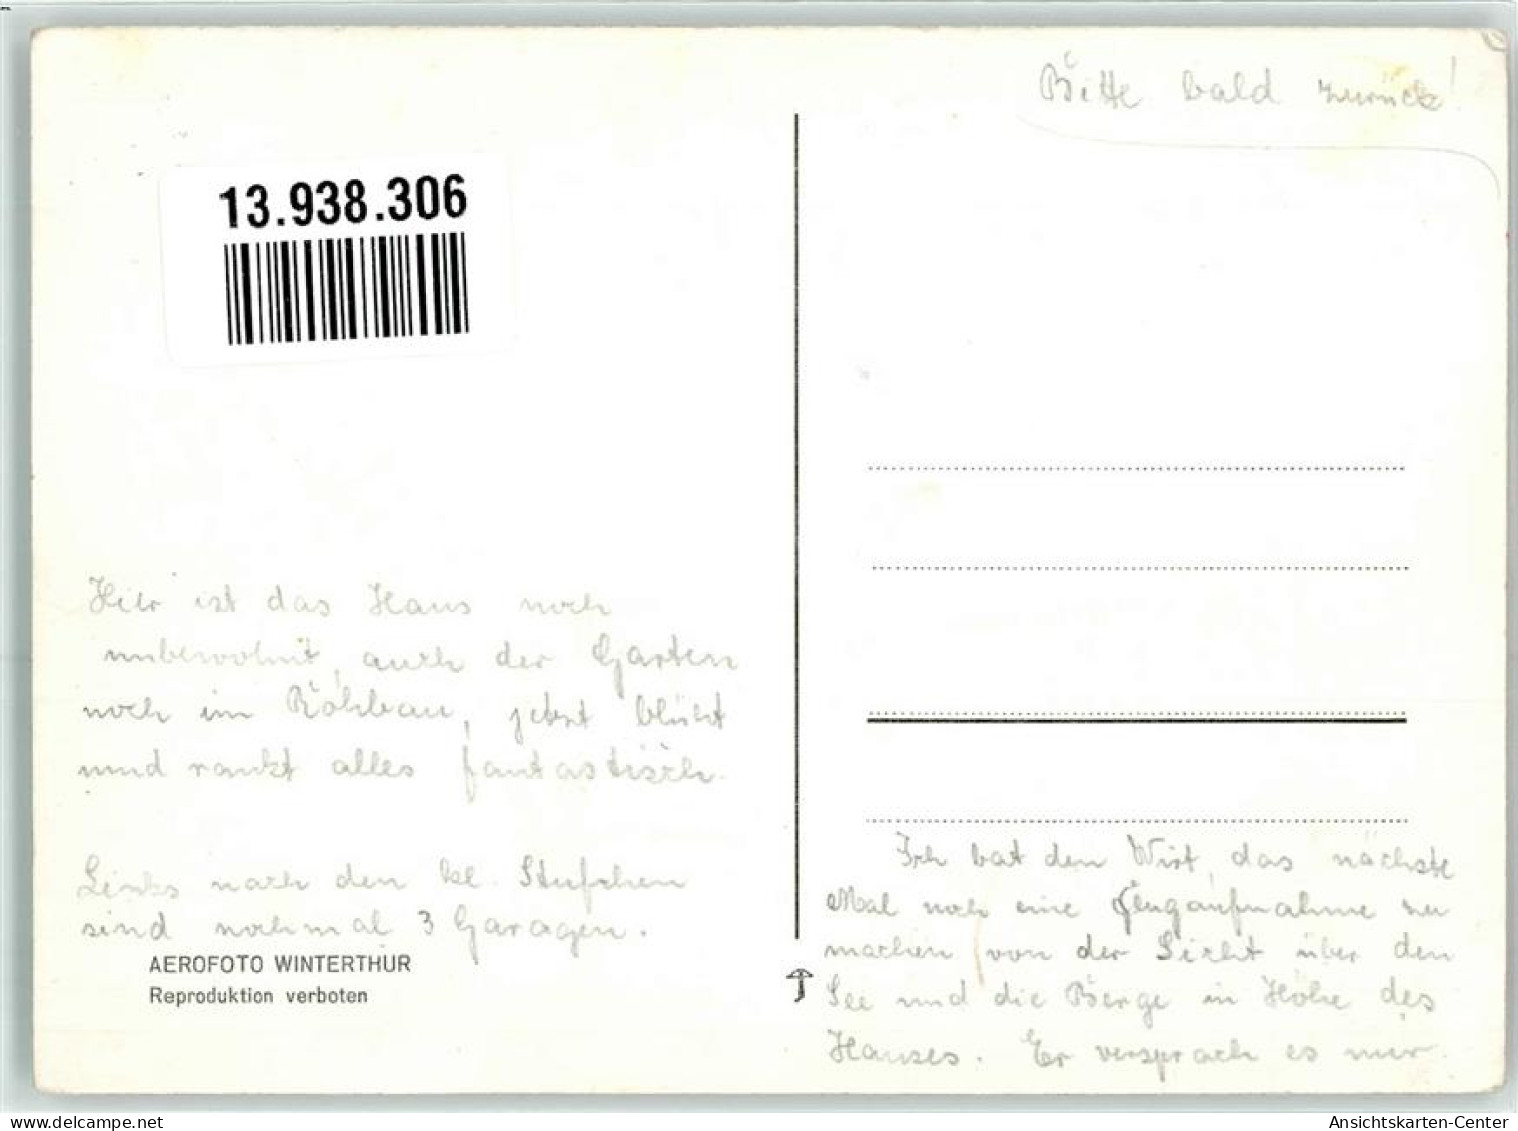 Bitte bald zurück!
13.938.306
Hier ist das Haus noch
unbewohnt, auch der Garten
noch im Rohbau, jetzt blüht
und rankt alles fantastisch.
Links nach den kl. Stufchen
sind nochmal 3 Garagen.
AEROFOTO WINTERTHUR
Reproduktion verboten
Ich bat den Wirt, das nächste
Mal noch eine Flugaufnahme zu
machen von der Sicht über den
See und die Berge in Höhe des
Hauses. Er versprach es mir.
delcampe.net
Ansichtskarten-Center